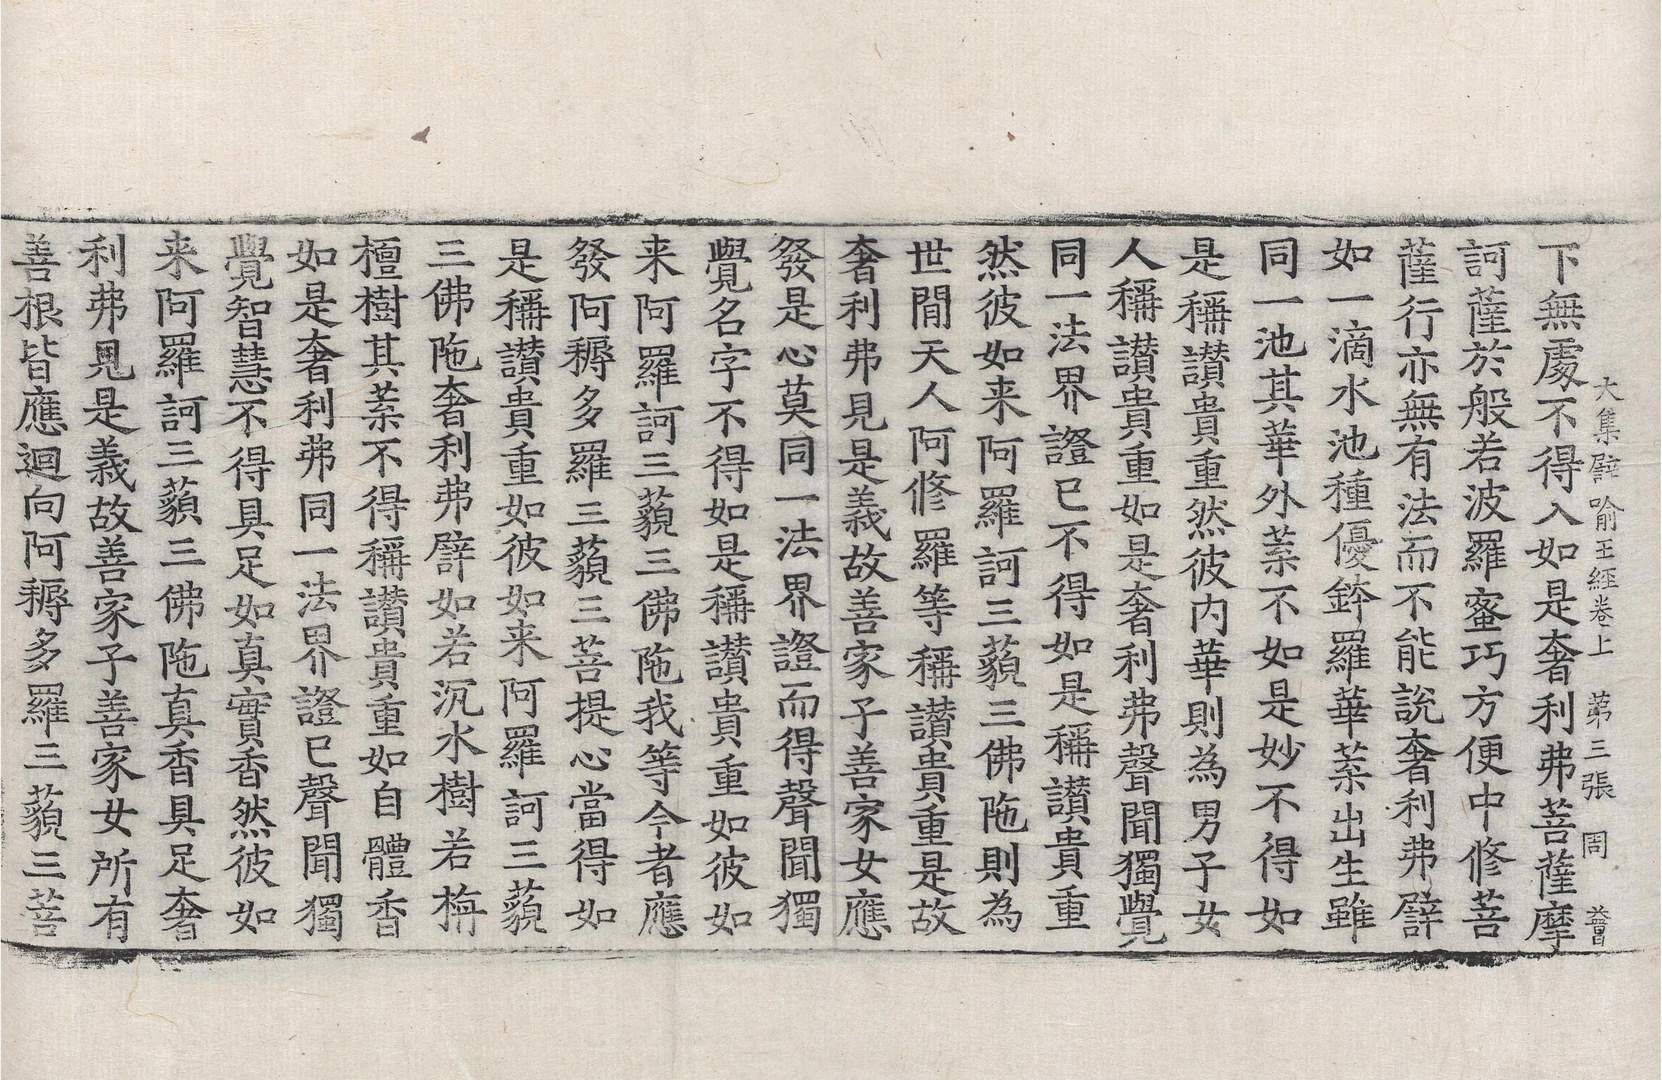 大集譬喻王經卷上　第三張　周　普
下無處不得入如是奢利弗菩薩摩
訶薩於般若波羅蜜巧方便中修菩
薩行亦無有法而不能說奢利弗譬
如一滴水池種優鉢羅華葉出生雖
同一池其華外葉不如是妙不得如
是稱讚貴重然彼內華則為男子女
人稱讚貴重如是奢利弗聲聞獨覺
同一法界證已不得如是稱讚貴重
然彼如来阿羅訶三藐三佛陁則為
世閒天人阿修羅等稱讚貴重是故
奢利弗見是義故善家子善家女應
發是心莫同一法界證而得聲聞獨
覺名字不得如是稱讚貴重如彼如
来阿羅訶三藐三佛陁我等今者應
發阿耨多羅三藐三菩提心當得如
是稱讚貴重如彼如来阿羅訶三藐
三佛陁奢利弗譬如若沉水樹若栴
檀樹其葉不得稱讚貴重如自體香
如是奢利弗同一法界證已聲聞獨
覺智慧不得具足如真實香然彼如
来阿羅訶三藐三佛陁真香具足奢
利弗見是義故善家子善家女所有
善根皆應迴向阿耨多羅三藐三菩